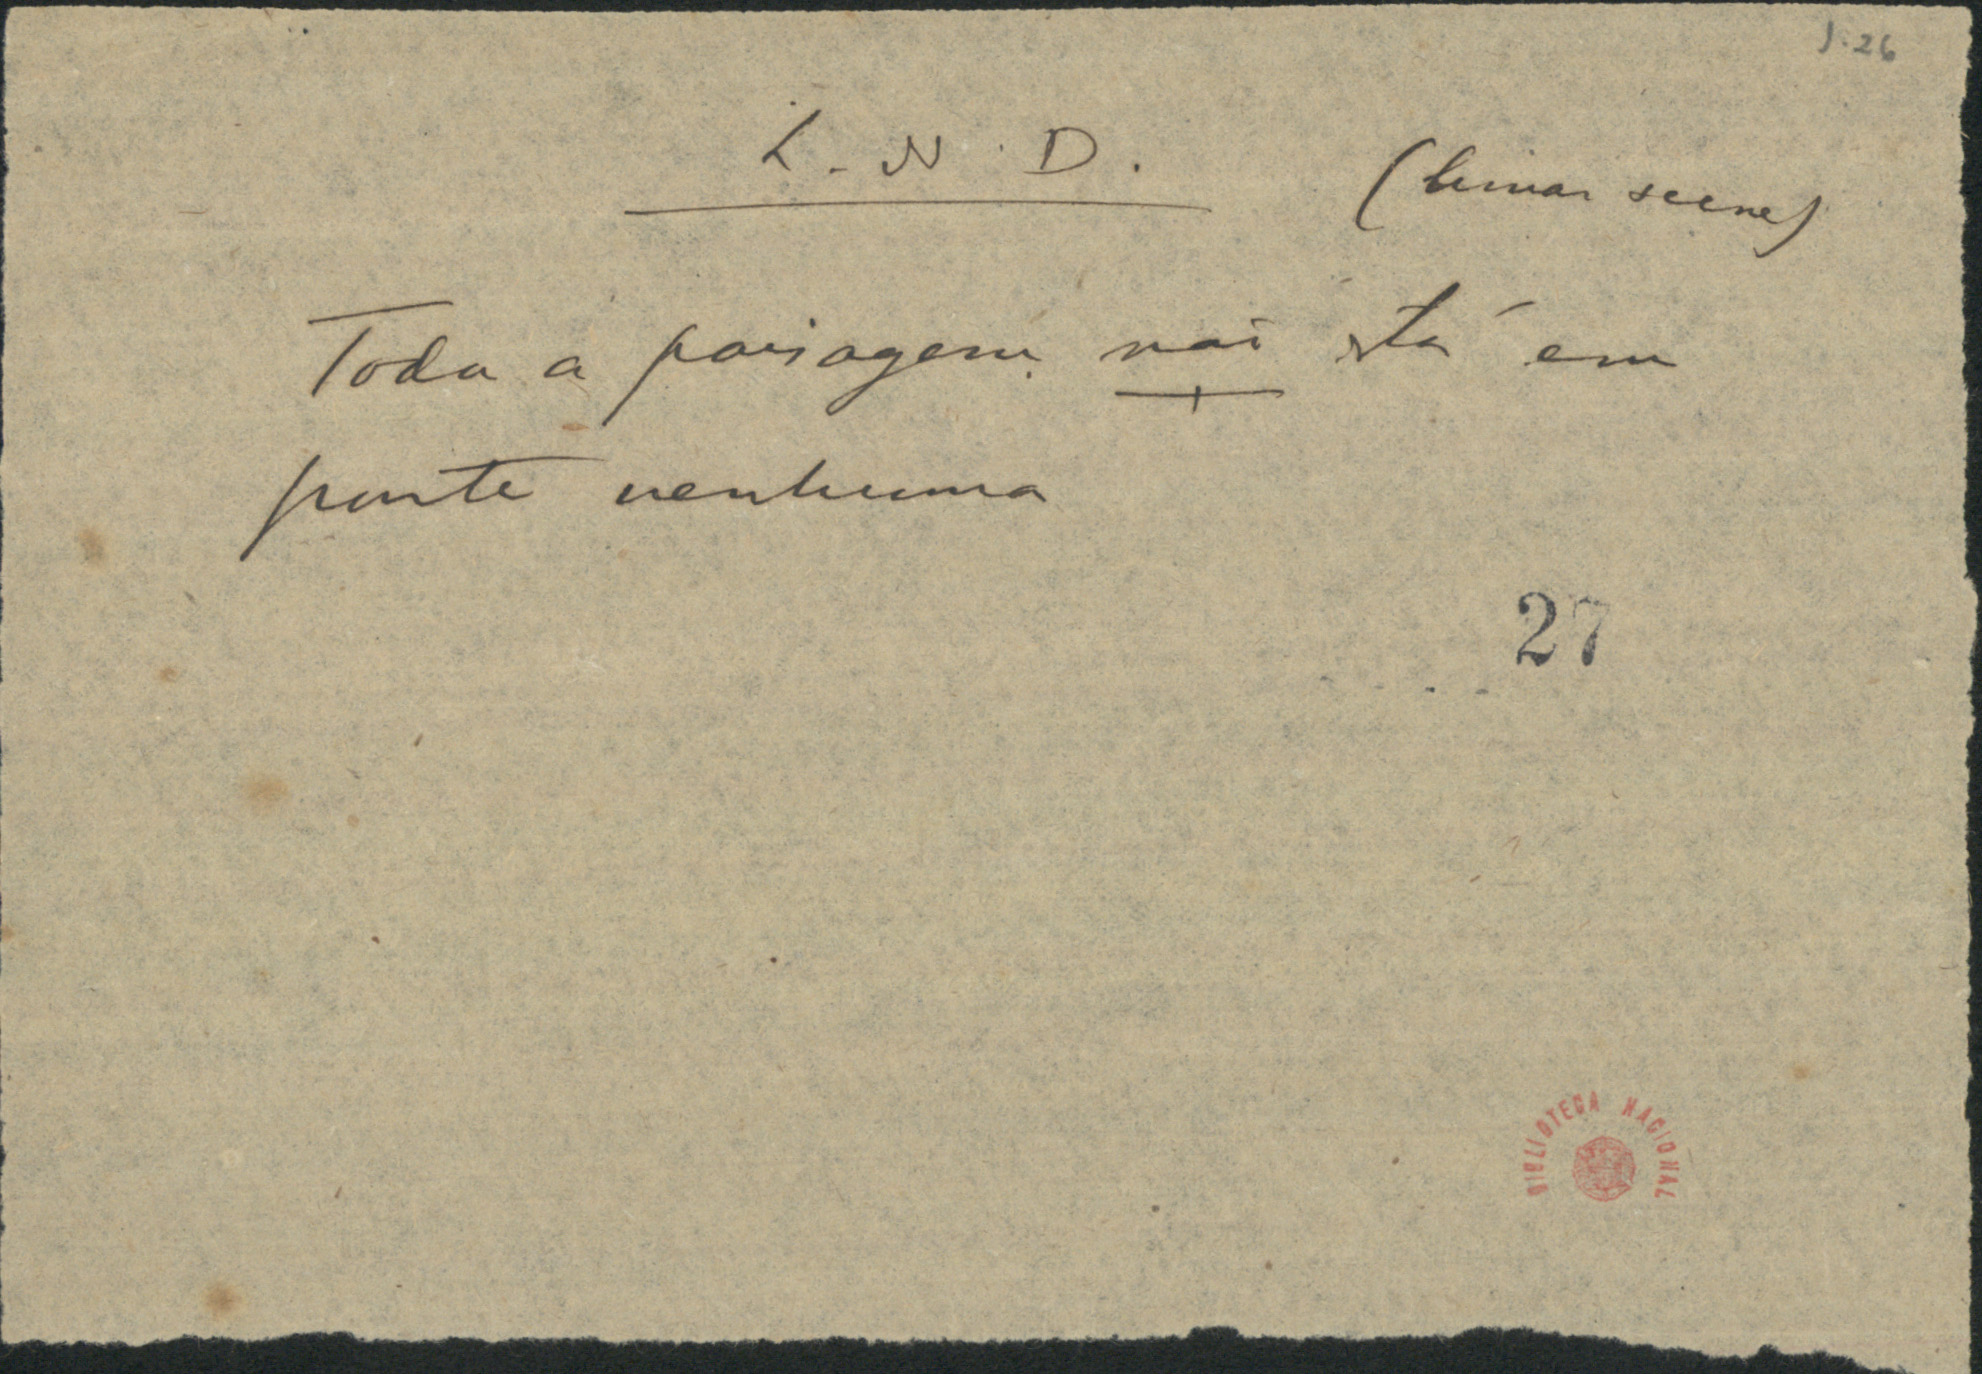 1.26
L. N. D. (lunar scene)
Toda a paisagem não stá em
parte nenhuma
27
BIBLIOTECA NACIONAL